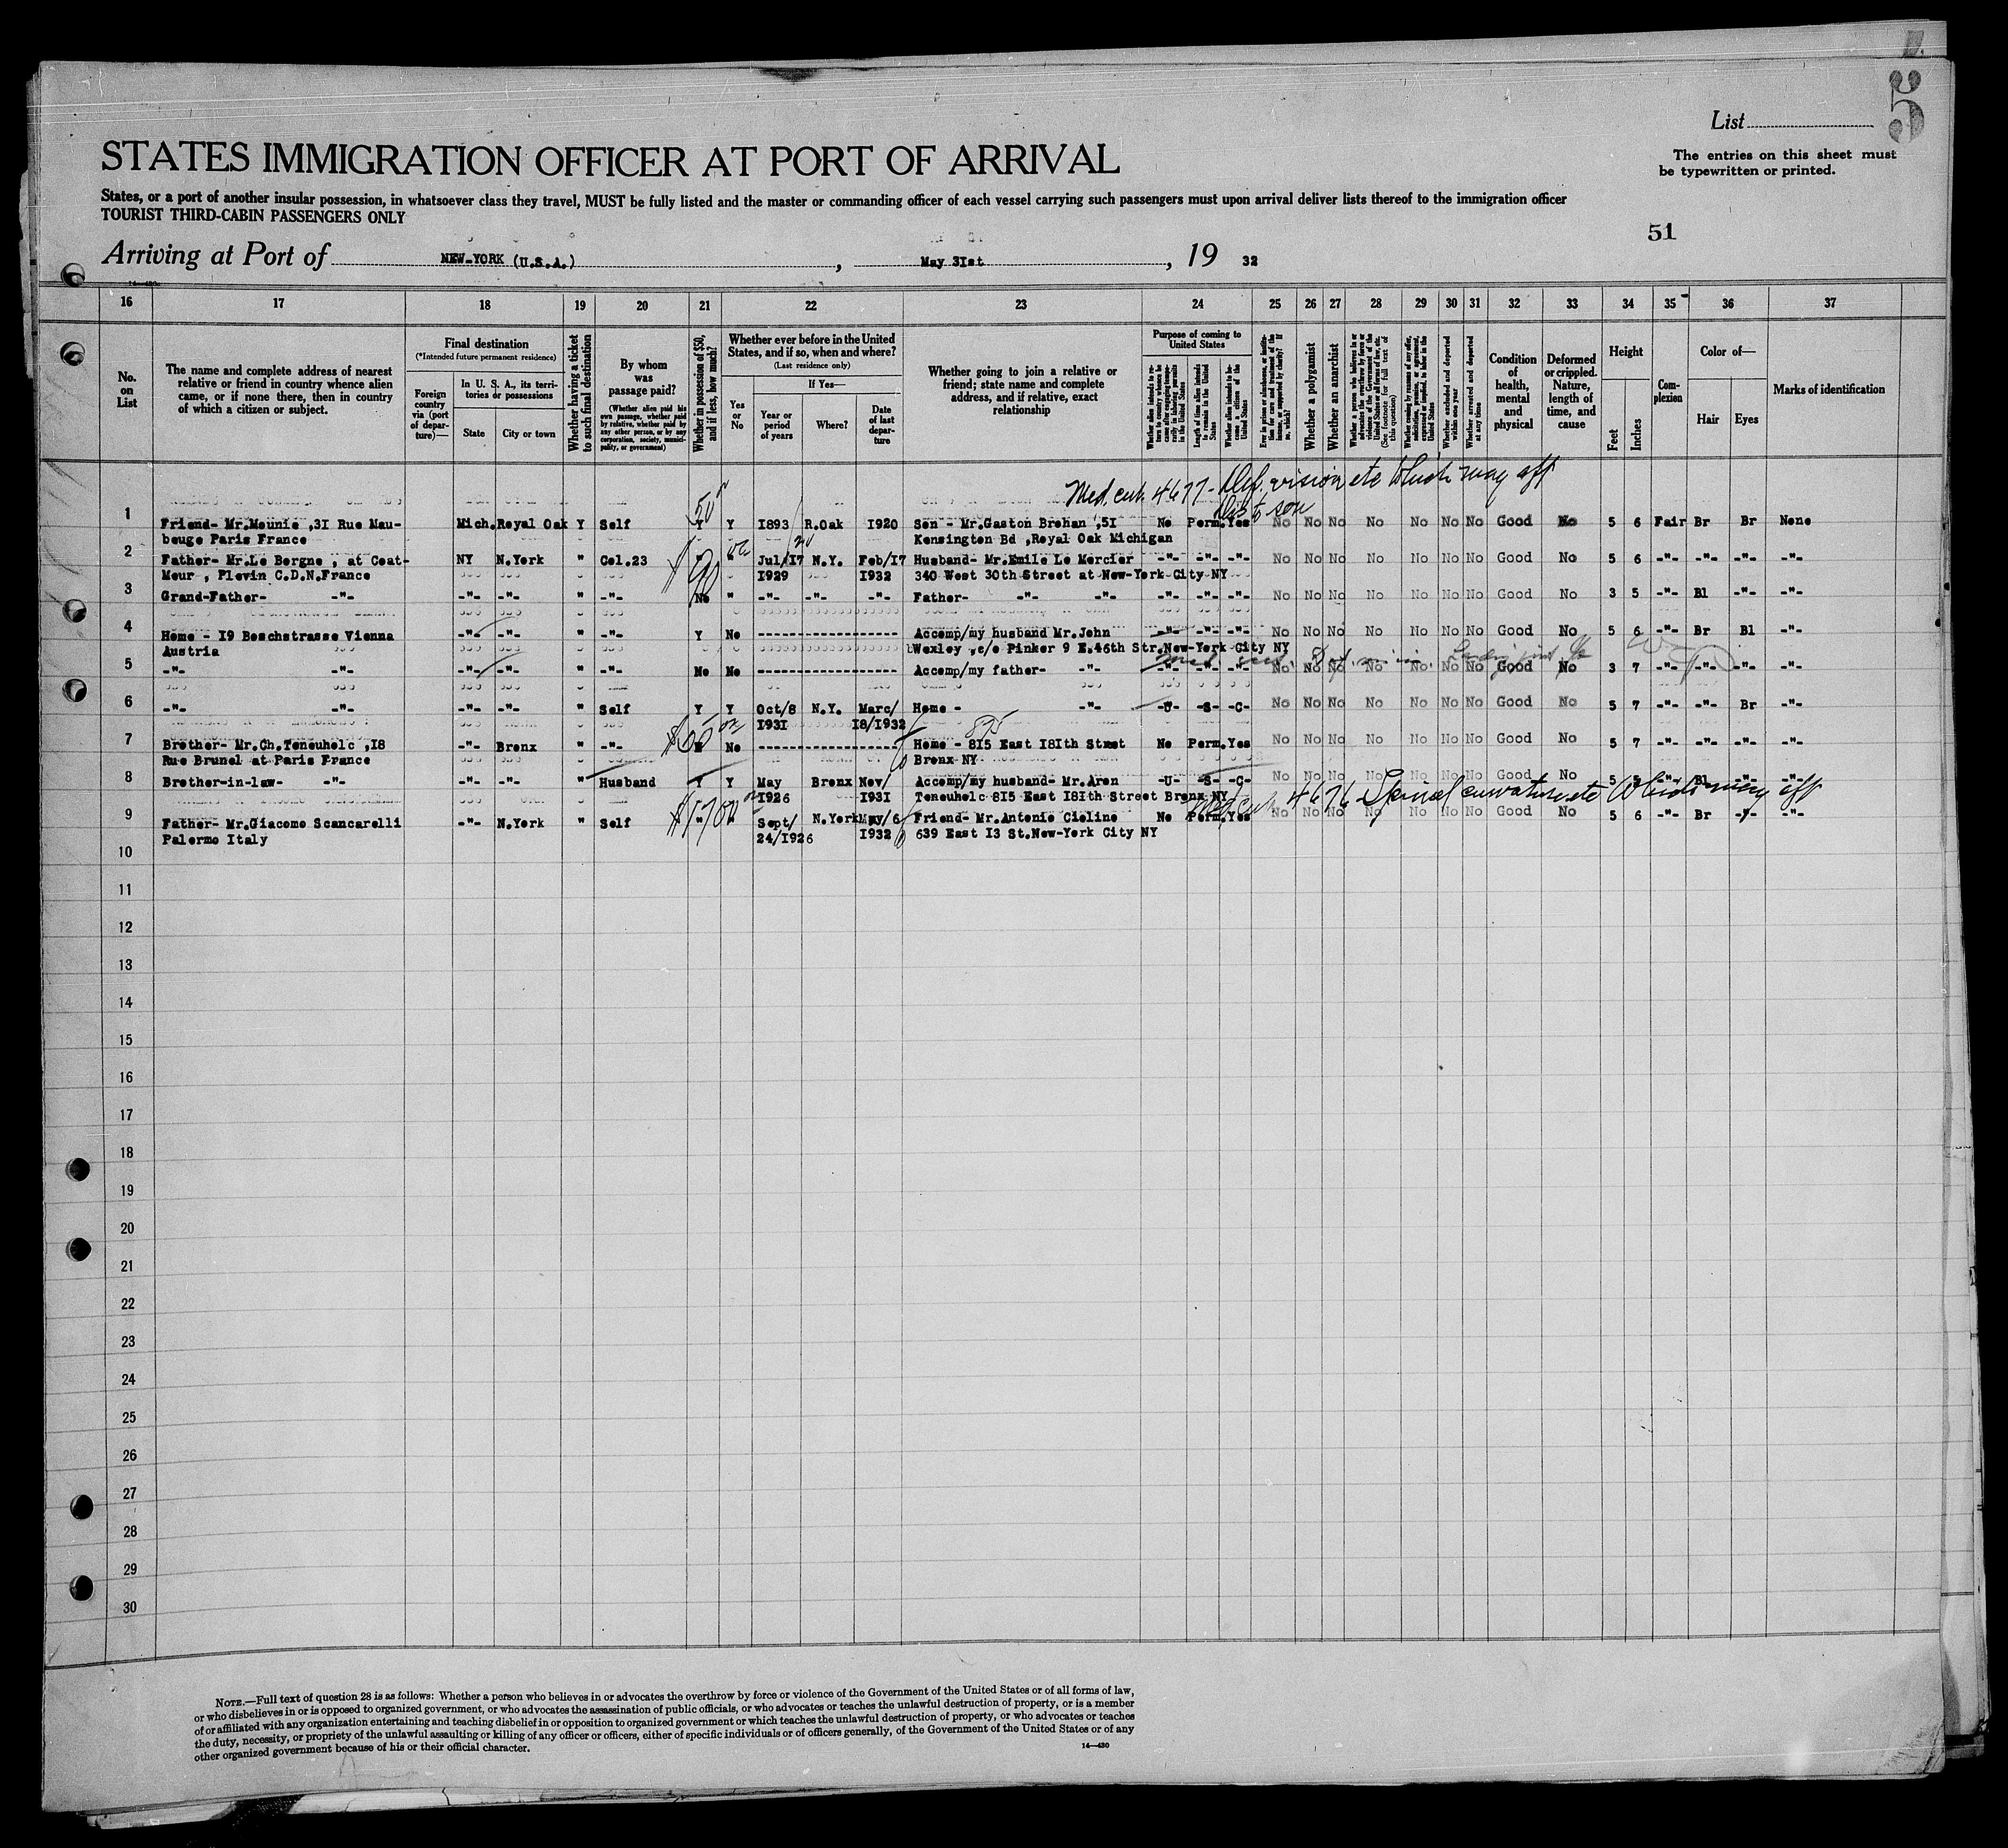 5
List
STATES IMMIGRATION OFFICER AT PORT OF ARRIVAL
The entries on this sheet must
be typewritten or printed.
States, or a port of another insular possession, in whatsoever class they travel, MUST be fully listed and the master or commanding officer of each vessel carrying such passengers must upon arrival deliver lists thereof to the immigration officer
TOURIST THIRD-CABIN PASSENGERS ONLY
51
Arriving at Port of NEW-YORK (U.S.A.), May 31st, 19 32
16 17 18 19 20 21 22 23 24 25 26 27 28 29 30 31 32 33 34 35 36 37
No. on List
The name and complete address of nearest
relative or friend in country whence alien
came, or if none there, then in country
of which a citizen or subject.
Final destination
(*Intended future permanent residence)
Foreign country via (port of departure)—
In U. S. A., its territories or possessions
State
City or town
Whether having a ticket to such final destination
By whom was passage paid?
(Whether alien paid his own passage, whether paid by relative, whether paid by any other person, or by any corporation, society, municipality, or government)
Whether in possession of $50, and if less, how much?
Whether ever before in the United
States, and if so, when and where?
(Last residence only)
If Yes—
Yes or No
Year or period of years
Where?
Date of last departure
Whether going to join a relative or
friend; state name and complete
address, and if relative, exact
relationship
Purpose of coming to United States
Length of time alien intends to remain in the United States
Whether alien intends to become a citizen of the United States
Whether a polygamist
Whether an anarchist
(See footnote for full text of this question)
Whether excluded and deported within one year
Whether arrested and deported at any time
Condition of health, mental and physical
Deformed or crippled. Nature, length of time, and cause
Height
Feet
Inches
Complexion
Color of—
Hair
Eyes
Marks of identification
Med. cert. 4677 - Def. vision etc which may aff
1 Friend- Mr.Meunie ,3I Rue Mau- Mich. Royal Oak Y Self 50 Y I893 R.Oak I920 Son - Mr.Gaston Brehan ,5I No Perm. Yes No No No No No No No Good No 5 6 Fair Br Br None
beuge Paris France Kensington Bd ,Royal Oak Michigan
2 Father- Mr.Le Bergne , at Coat- NY N.York " Cel.23 " Jul/I7 N.Y. Feb/I7 Husband- Mr.Emile Le Mercier -"- -"- -"- No No No No No No No Good No 5 6 -"- -"- -"- -"-
Meur , Plevin C.D.N.France I929 I932 340 West 30th Street at New-York City NY
3 Grand-Father- -"- -"- -"- " -"- No " -"- -"- -"- Father- -"- -"- -"- -"- -"- No No No No No No No Good No 3 5 -"- Bl -"- -"-
4 Home - I9 Beschstrasse Vienna -"- -"- " -"- Y No ------------------- Accomp/my husband Mr.John -"- -"- -"- No No No No No No No Good No 5 6 -"- Br Bl -"-
Austria Wexley ,c/o Pinker 9 E.46th Str.New-York City NY
5 -"- -"- -"- -"- " -"- No No ------------------- Accomp/my father- -"- -"- -"- -"- No No No No No No No Good No 3 7 -"- -"- -"- -"-
6 -"- -"- -"- -"- " Self Y Y Oct/8 N.Y. Marc/ Home - -"- -U- -S- -C- No No No No No No No Good No 5 7 -"- -"- Br -"-
I93I I8/I932
875
7 Brother- Mr.Ch.Teneuholc ,I8 -"- Bronx " -"- $60 No ------------------- Home - 8I5 East I8Ith Street No Perm. Yes No No No No No No No Good No 5 7 -"- -"- -"- -"-
Rue Brunel at Paris France Bronx NY
8 Brother-in-law- -"- -"- -"- " Husband Y Y May Bronx Nov/ Accomp/my husband- Mr.Aron -U- -S- -C- No No No No No No No Good No 5 -"- Bl -"- -"-
I926 I93I Teneuholc 8I5 East I8Ith Street Bronx NY
Med cert. 4676 Spinal curvature etc Which may aff
9 Father- Mr.Giacomo Scancarelli -"- N.York " Self " Sept/ N.York May/6 Friend- Mr.Antonio Cioline No Perm. Yes No No No No No No No Good No 5 6 -"- Br -"- -"-
Palermo Italy 24/I926 I932 639 East I3 St.New-York City NY
10
11
12
13
14
15
16
17
18
19
20
21
22
23
24
25
26
27
28
29
30
NOTE.—Full text of question 28 is as follows: Whether a person who believes in or advocates the overthrow by force or violence of the Government of the United States or of all forms of law,
or who disbelieves in or is opposed to organized government, or who advocates the assassination of public officials, or who advocates or teaches the unlawful destruction of property, or is a member
of or affiliated with any organization entertaining and teaching disbelief in or opposition to organized government or which teaches the unlawful destruction of property, or who advocates or teaches
the duty, necessity, or propriety of the unlawful assaulting or killing of any officer or officers, either of specific individuals or of officers generally, of the Government of the United States or of any
other organized government because of his or their official character.
14—430